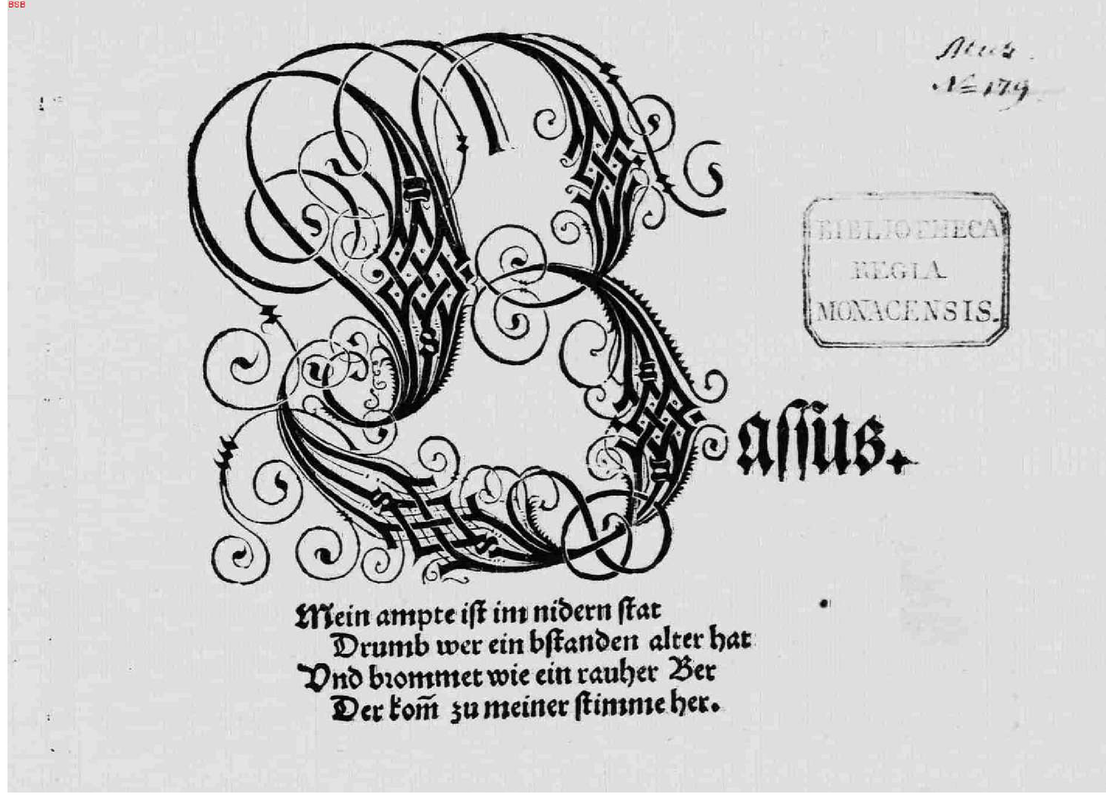 BSB
Mus.
No 179
BIBLIOTHECA
REGIA
MONACENSIS.
Bassus.
Mein ampte ist im nidern stat
Drumb wer ein bstanden alter hat
Vnd brommet wie ein rauher Ber
Der kom̃ zu meiner stimme her.